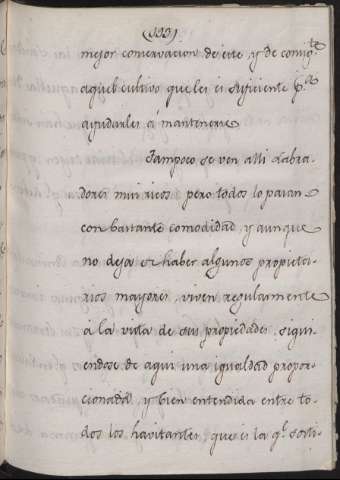 (333)
mejor conservacion de este, y de consig.te
aquel cultivo que les es suficiente p.a
ayudarles á mantenerse
Tampoco se ven alli Labra-
dores mui ricos, pero todos lo pasan
con bastante comodidad, y aunque
no deja de haber algunos propieta-
rios mayores, viven regularmente
a la vista de sus propiedades, sigui-
endose de aqui una igualdad propor-
cionada, y bien entendida entre to-
dos los havitantes, que es la q.e